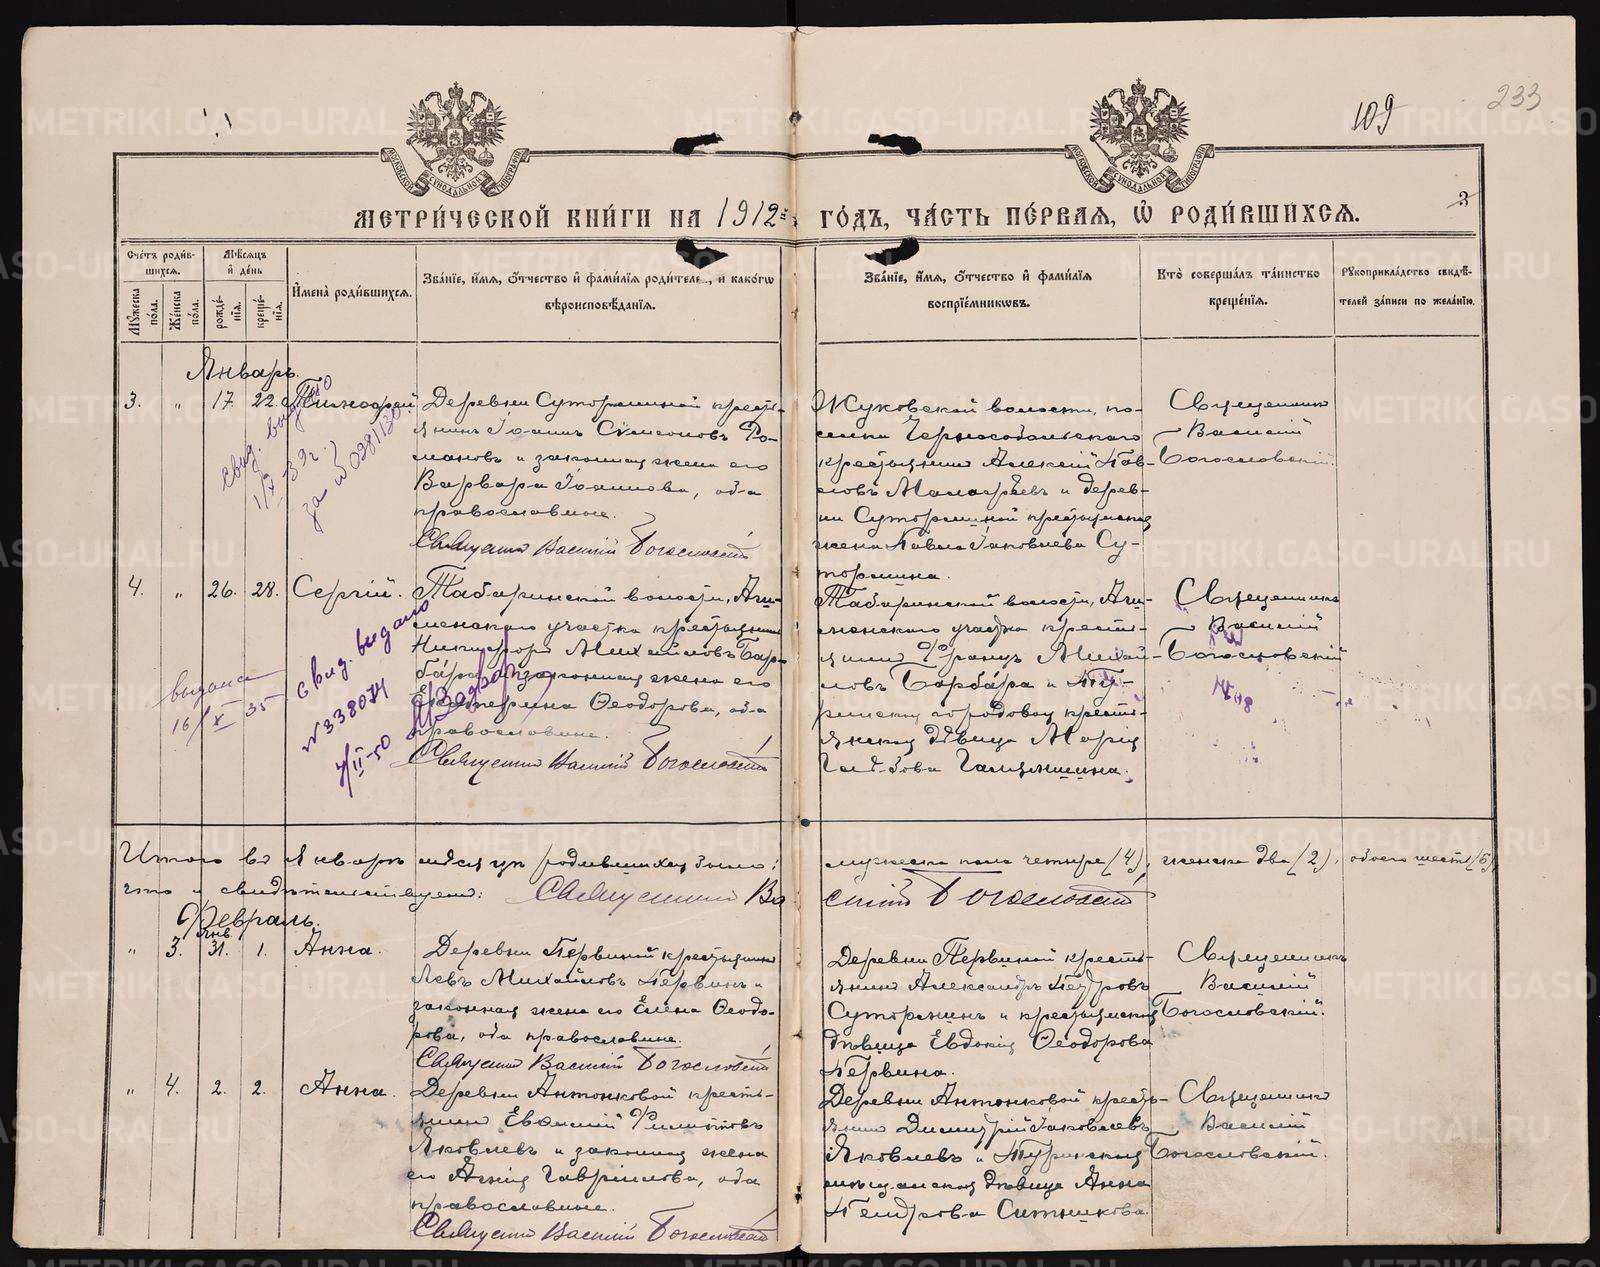 109
233
3
МЕТРИ́ЧЕСКОЙ КНИ́ГИ НА 1912й ГО́ДЪ, ЧА́СТЬ ПЕ́РВАѦ, Ѡ҆ РОДИ́ВШИХСѦ.
Сче́тъ роди́в-
шихсѧ.
Мѣ́сѧцъ
и҆ де́нь
Мꙋ́жеска по́ла.
Же́нска по́ла.
рожде́-
нїѧ.
креще́-
нїѧ.
И҆мена̀ роди́вшихсѧ.
Зва́нїе, и҆́мѧ, ѻ҆́тчество и҆ фами́лїѧ роди́теле , и҆ како́гѡ
вѣроисповѣ́данїѧ.
Зва́нїе, и҆́мѧ, ѻ҆́тчество и҆ фами́лїѧ
воспрїе́мникѡвъ.
Кто̀ соверша́лъ та́инство
креще́нїѧ.
Рꙋкоприкла́дство свидѣ́-
телей за́писи по жела́нїю.
Январь.
3. " 17. 22. Тимофей
Деревни Суторминой кресть-
янинъ Іоаннъ Симеоновъ Ро-
мановъ и законная жена его
Варвара Іоаннова, оба
православные.
Священникъ Василій Богословскій
Жуковской волости, по-
селка
крестьянинъ Алексій Пав-
ловъ и дерев-
ни Суторминой крестьянская
жена Іаковлева Су-
тормина.
Священникъ
Василій
Богословскій.
свид. выдано
за №
4. " 26. 28. Сергій.
Табаринской волости,
участка крестьянинъ
Никифоръ Михайловъ Бар-
бара и законная жена его
Екатерина Ѳеодорова, оба
православные.
Священникъ Василій Богословскій
Табаринской волости,
участка кресть-
янинъ Францъ Михай-
ловъ Барбара и Ту-
ринская городовая кресть-
янская дѣвица Марія
Священникъ
Василій
Богословскій
выдана
16/X 35
свид. выдано
№ 338074
4/II-50
Итого въ Январѣ мѣсяцѣ родившихся было: мужеска пола четыре (4), женска два (2), обоего шесть (6)
что и свидѣтельствуемъ: Священникъ Василій Богословскій
Февраль.
" 3. янв. 31. 1. Анна.
Деревни Первиной крестьянинъ
Левъ Михайловъ Первинъ и
законная жена его Елена Ѳеодо-
рова, оба православные.
Священникъ Василій Богословскій
Деревни Первиной кресть-
янинъ Александръ Петровъ
Суторминъ и крестьянская
дѣвица Евдокія Ѳеодорова
Первина.
Священникъ
Василій
Богословскій.
" 4. 2. 2. Анна.
Деревни Антонковой кресть-
янинъ Евѳимій Филипповъ
Яковлевъ и законная жена
его Гавріилова, оба
православные.
Священникъ Василій Богословскій
Деревни Антонковой кресть-
янинъ Димитрій Іаковлевъ
Яковлевъ и Туринская
мѣщанская дѣвица Анна
Петрова Ситникова.
Священникъ
Василій
Богословскій.